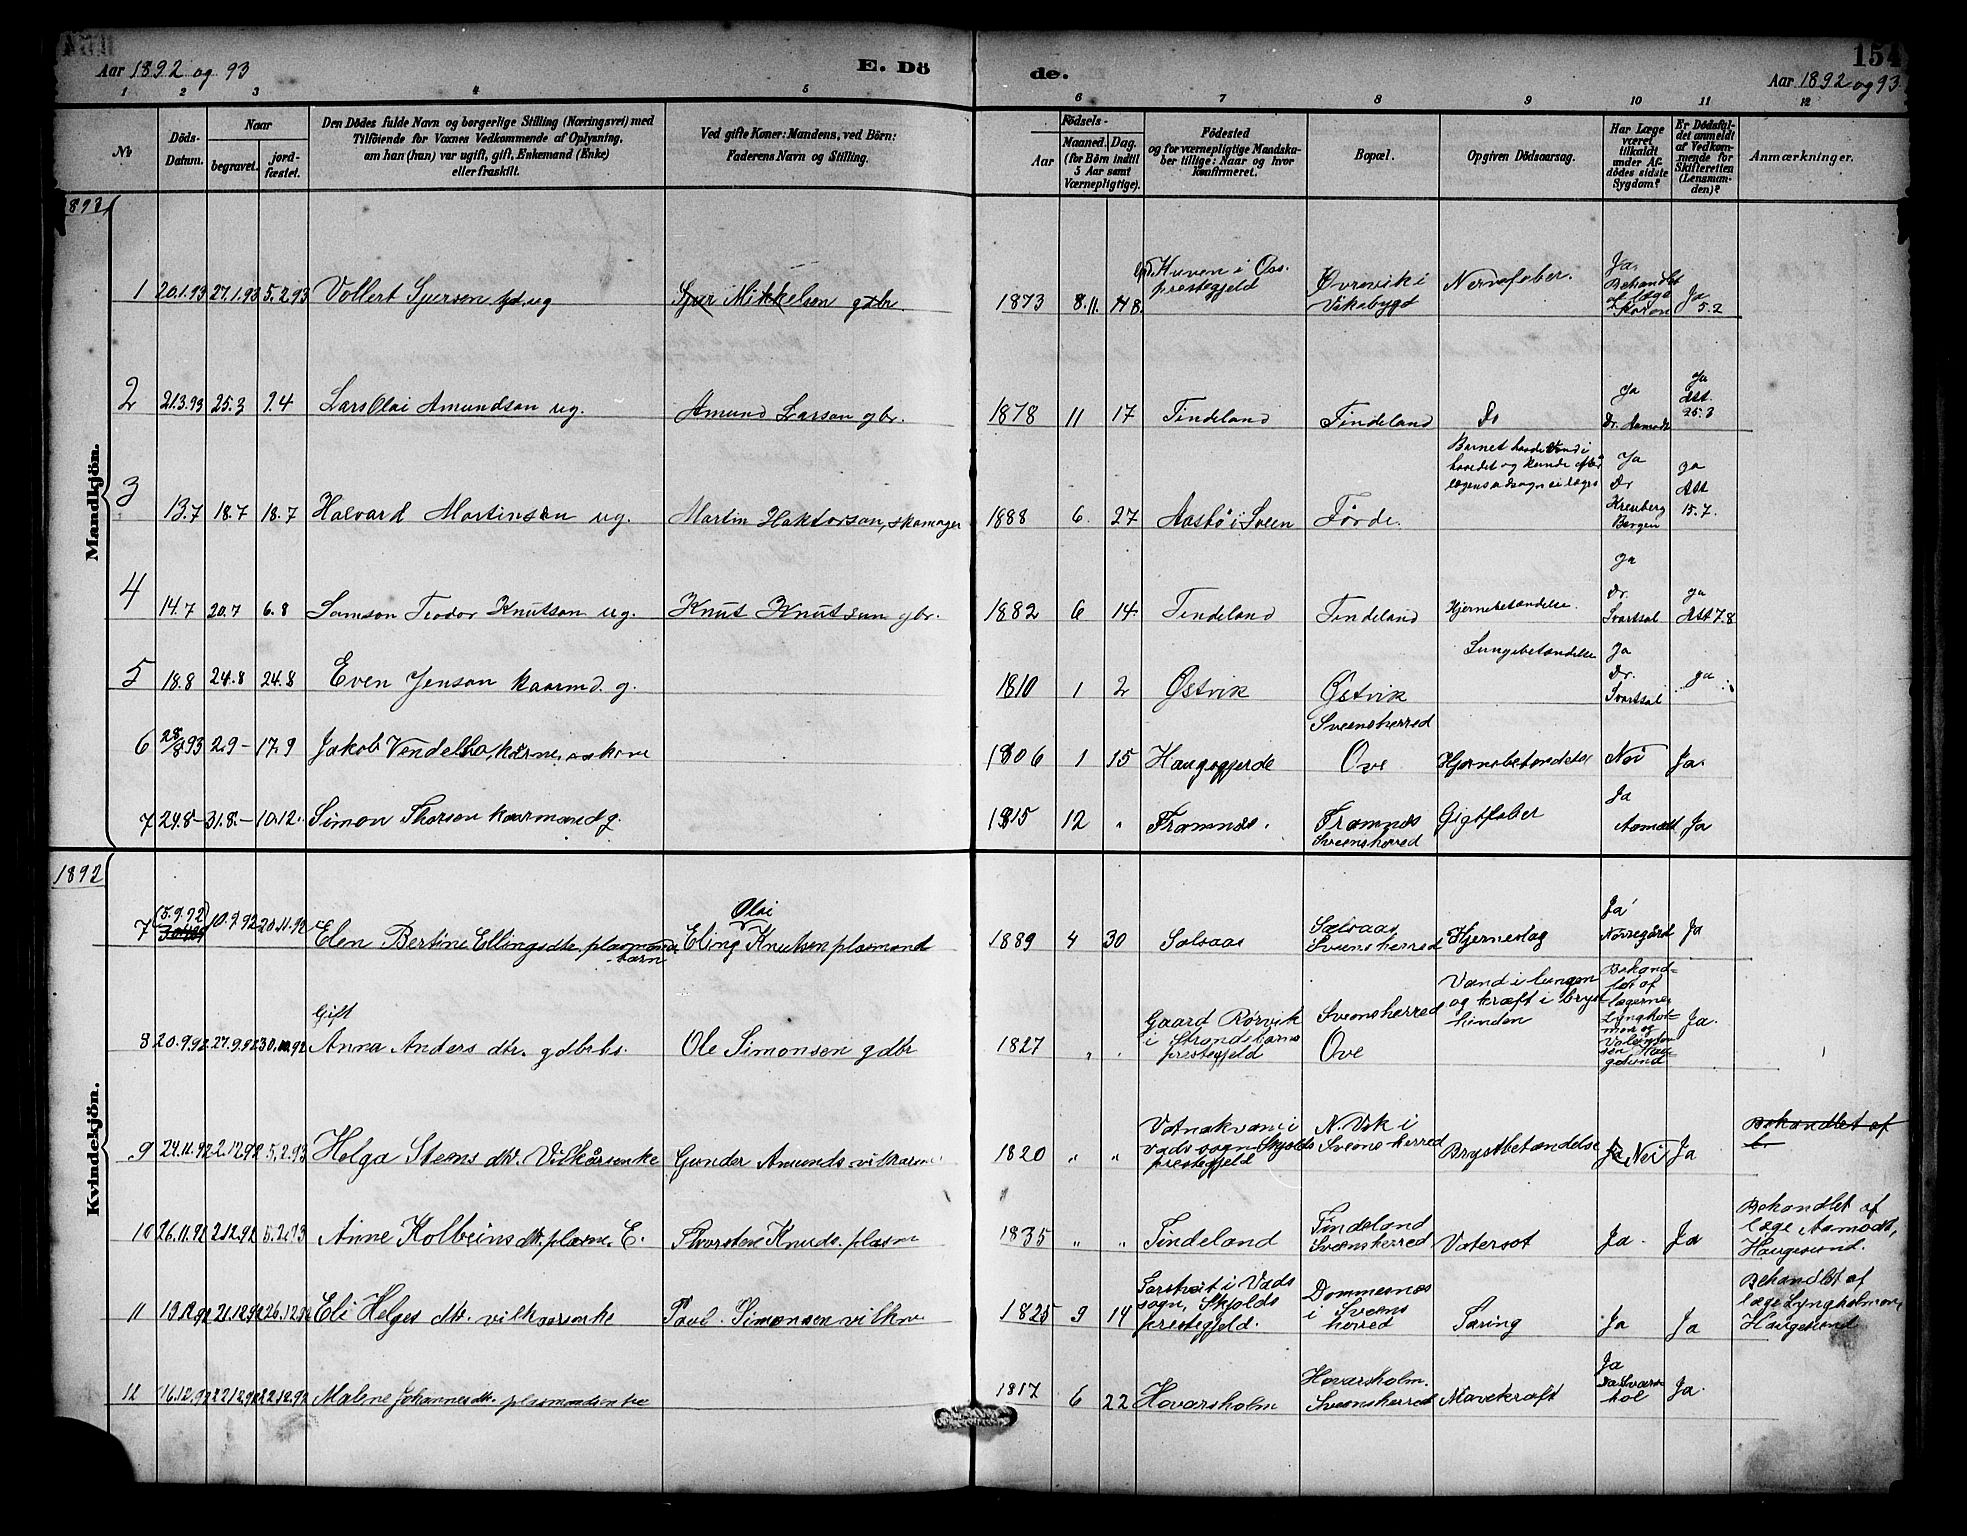 154
Aar 1892 og 93
E. Dö
de.
Aar 1892 og 93
1 2 3 4 5 6 7 8 9 10 11 12
№
Döds-
Datum.
Naar
begravet.
jord-
fæstet.
Den Dödes fulde Navn og borgerlige Stilling (Næringsvei) med
Tilföiende for Voxnes Vedkommende af Oplysning,
om han (hun) var ugift, gift, Enkemand (Enke)
eller fraskilt.
Ved gifte Koner: Mandens, ved Börn:
Faderens Navn og Stilling.
Födsels-
Aar
Maaned. Dag.
(for Börn indtil
5 Aar samt
Værnepligtige).
Födested
og for værnepligtige Mandska-
ber tillige: Naar og hvor
Konfirmeret.
Bopæl.
Opgiven Dödsaarsag.
Har Læge
været
tilkaldt
under Af-
dödes sidste
Sygdom?
Er Dödsfal-
det anmeldt
af Vedkom-
mende for
Skifteretten
(Lensman-
den)?
Anmærkninger.
Mandkjön.
1893
1 20.1.93 27.1.93 5.2.93 Vollert Sjursen ug Sjur Mikkelsen gdbr. 1873 8. 11. Huven i Øs.
prestegjeld Øvrevik i
Vikebygd Nervefeber. Ja.
Behandlet
af læge Ja
5.2
2 21.3.93 25.3 7.4 Lars Olai Amundson ug. Amund Larson gbr. 1878 11 17 Tindeland Tindeland Do Ja
Dr. Aamodt Ja
Att.
25.3
3 13.7 18.7 18.7 Halvard Martinson ug. Martin Haktorson, skomager 1888 6. 27 Aastö i Sveen Förde. Barnet havde Vand i
hovedet og kunde efter
lægens udsagn ei læges Ja
Dr
Kreuberg
Bergen Ja
Att
15.7.
4 14.7 20.7 6.8 Samson Teodor Knutson ug. Knut Knutson gbr. 1882 6 14. Tindeland Tindeland Hjernebetændelse. Ja
Dr.
Svartsal Ja
Att 7.8
5 18.8 24.8 24.8 Even Jenson kaarmd. g. 1810 1 2 Østvik Østvik Lungebetændelse Ja
Dr.
Svartsal Ja
6 28/8 93 2.9 - 17.9 Jakob 1806 1 15 Haugsgjerde Sveensherred
Ove Hjernebetændelse Nei Ja.
7 24.8 - 31.8. - 10.12. Simon Thorsen kaarmand g. 1815 12 " Framnes. Framnes
Sveensherred Gigtfeber Ja
Aamodt Ja
Kvindekjön.
1892
7 (5.9.92) 10.9.92 20.11.92 Elen Bertine Ellingsdtr. plasmands
barn Eling Olai Knutsen plasmand 1889 4 30 Salsaas Salsaas
Sveensherred Hjerneslag Ja
Nörregård Ja
8 20.9.92 27.9.92 30.10.92 Gift
Anna Anders dtr. gdbrhs. Ole Simonsen gdbr 1827 " . Gaard Rörvik
i Strandebarms
prestegjeld Sveensherred
Ove Vand i lungen
og kræft i bryst
hinden Behand-
let af
lægerne
Lynghol-
men og
Valentin-
sen Hau-
gesund Ja.
9 24.11.92 2.12.92 5.2.93 Helga Stens dtr. Vilkårsenke Gunder Amunds. vilkårm. 1820 " " Vatnakvam i
Vads sogn Skjolds
prestegjeld N. Vik i
Sveens herred Brystbetændelse Ja Nei Ja Behandlet af
10 26.11.92 2.12.92 5.2.93 Anne Kolbeins dtr. plasm. E. Thorsten Knuds. plasm 1835 " " Tindeland Tindeland
Sveensherred Vatersot Ja. Ja Behandlet af
læge Aamodt,
Haugesund.
11 15.12.92 21.12.92 26.12.92 Eli Helges dtr. vilkaarsenke Paul Simonsen vilkm 1825 9 14 i Vads
sogn, Skjolds
prestegjeld. Dommesnes
i Sveens
herred Tæring Ja Ja Behandlet af
læge Lyngholmen,
Haugesund
12 16.12.92 22.12.92 22.12.92 Malene Johannesdtr. plasmandsenke 1817 6 22 Hovarsholm Hovarsholm.
Sveensherred Mavekræft Ja Ja.